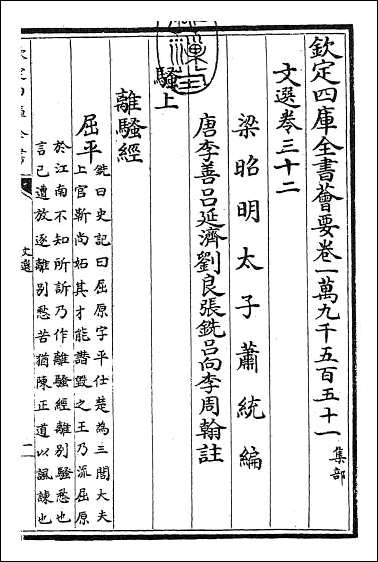 欽定四庫全書薈要卷一萬九千五百五十一
集部
文選卷三十二
梁昭明太子蕭統編
唐李善呂延濟劉良張銑呂向李周翰註
騷上
離騷經
屈平
銑曰史記曰屈原字平仕楚為三閭大夫
上官靳尚妬其才能譖毀之王乃流屈原
於江南不知所訴乃作離騷經離別騷愁也
言已遭放逐離別愁苦猶陳正道以諷諫也
文選